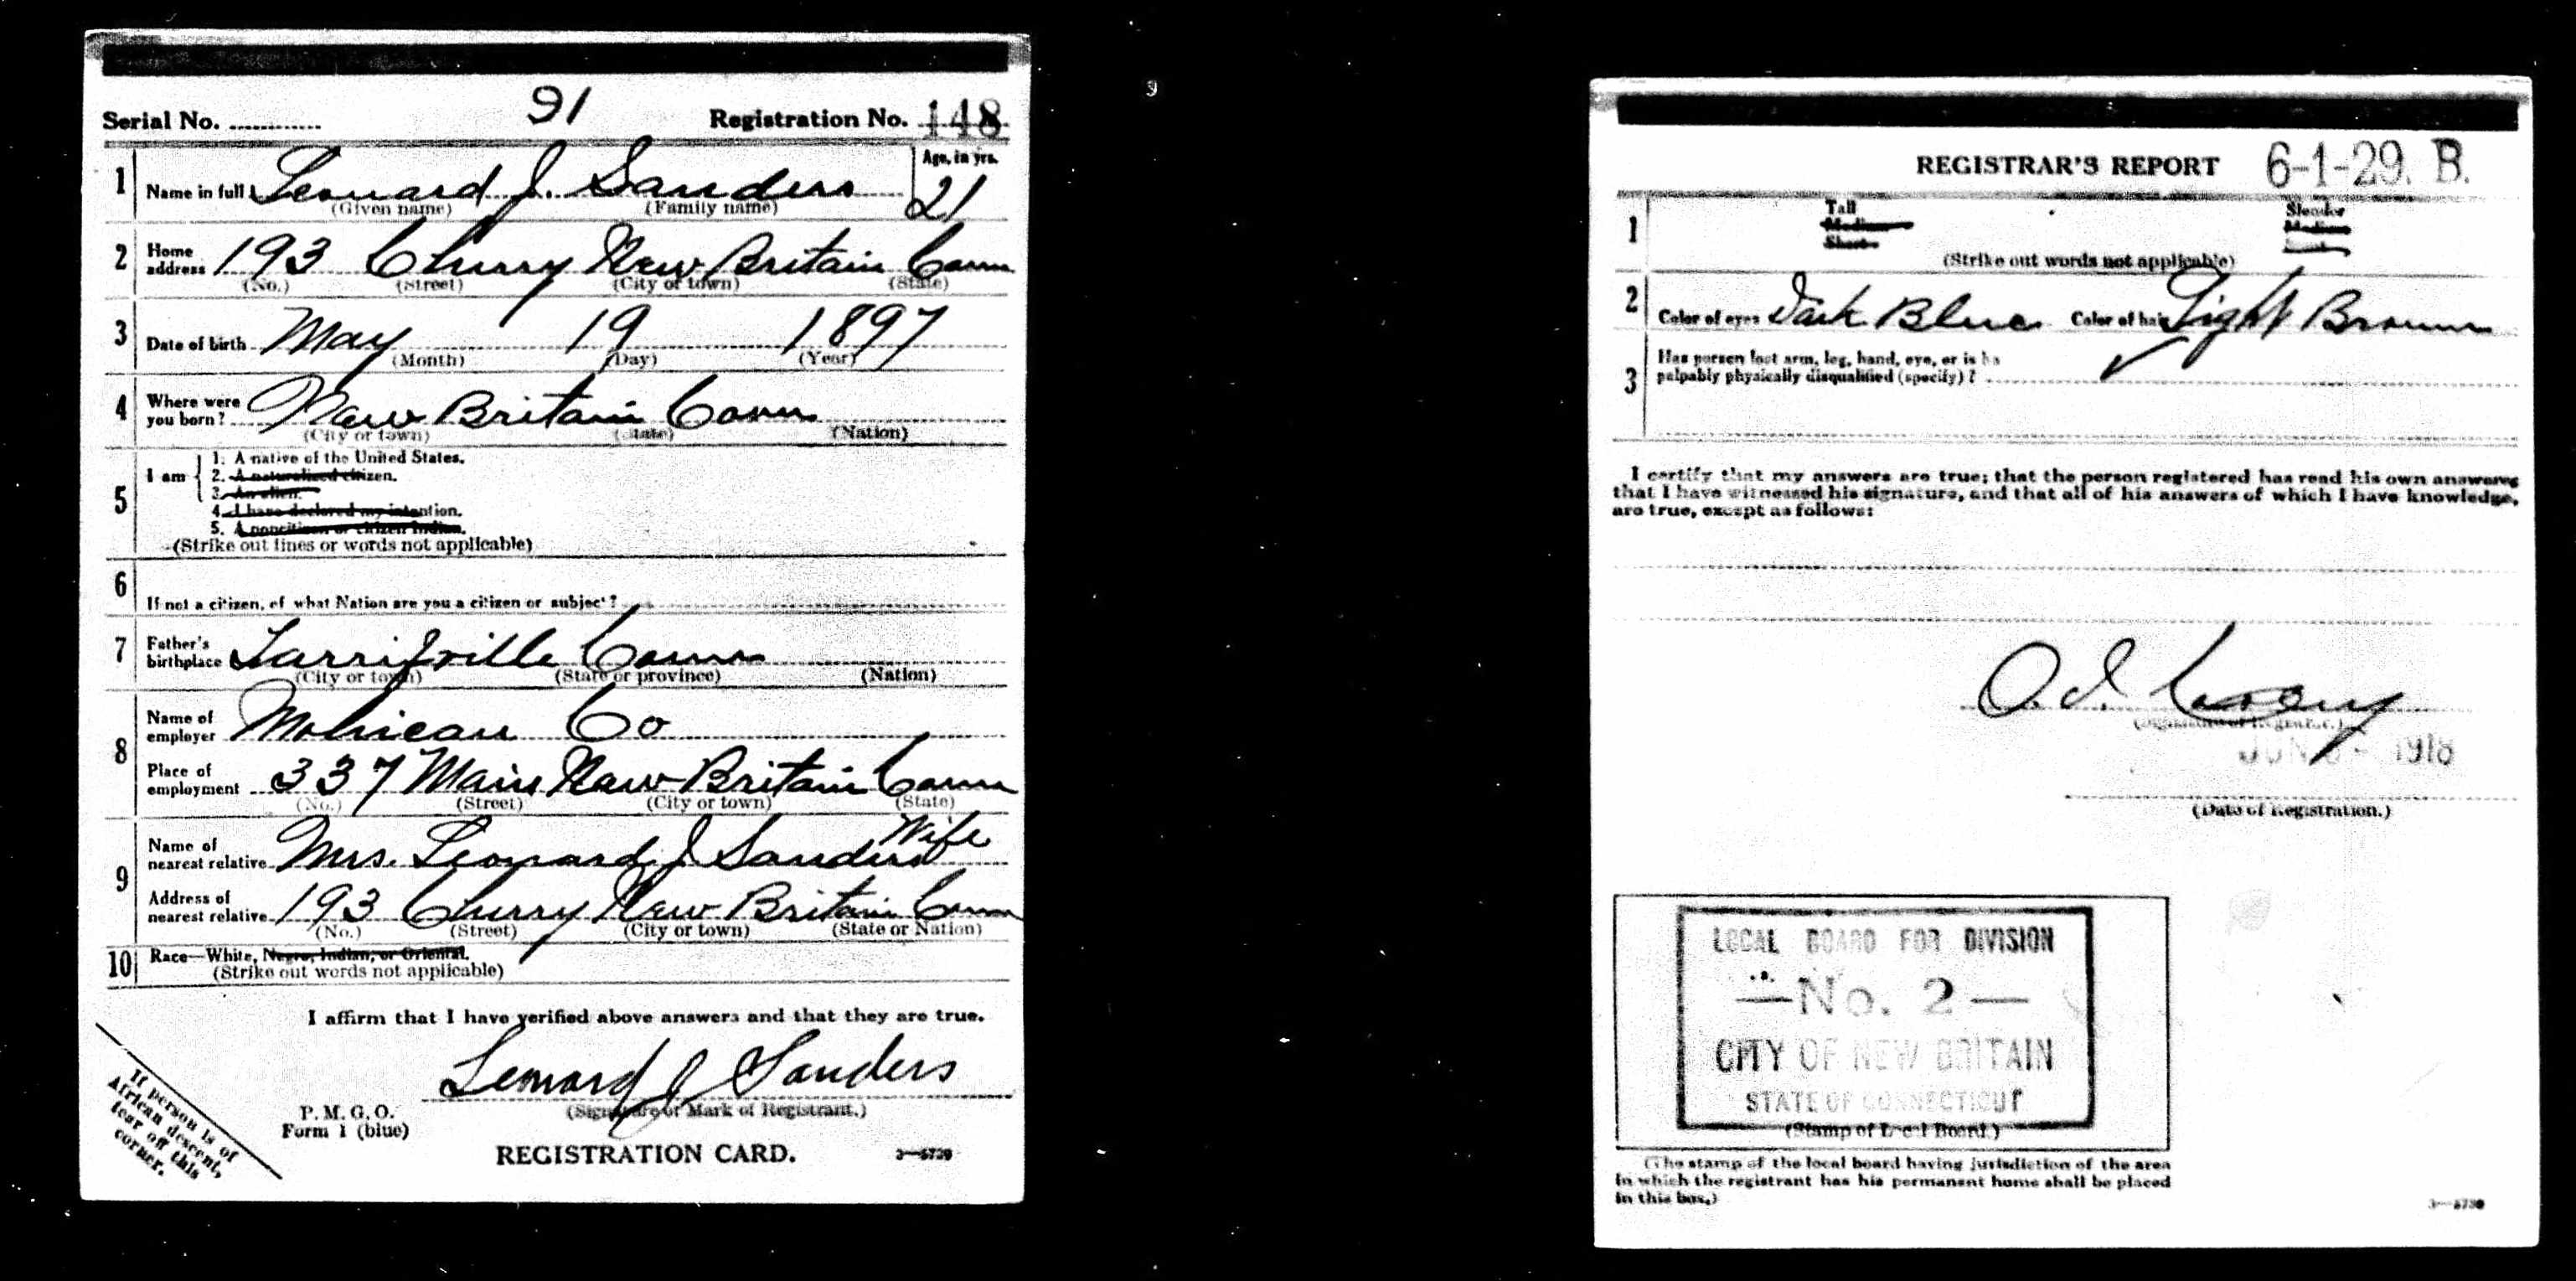 91
Serial No. ............ Registration No. 148
1 Name in full Leonard J. Sanders Age, in yrs. 21
(Given name) (Family name)
2 Home address 193 Cherry New Britain Conn
(No.) (Street) (City or town) (State)
3 Date of birth May 19 1897
(Month) (Day) (Year)
4 Where were you born? New Britain Conn
(City or town) (State) (Nation)
5 I am
1. A native of the United States.
2. A naturalized citizen.
3. An alien.
4. I have declared my intention.
5. A noncitizen or citizen Indian.
(Strike out lines or words not applicable)
6 If not a citizen, of what Nation are you a citizen or subject?
7 Father's birthplace Tarrifville Conn
(City or town) (State or province) (Nation)
8 Name of employer Mohican Co
Place of employment 337 Main New Britain Conn
(No.) (Street) (City or town) (State)
9 Name of nearest relative Mrs. Leonard J Sanders Wife
Address of nearest relative 193 Cherry New Britain Conn
(No.) (Street) (City or town) (State or Nation)
10 Race—White, Negro, Indian, or Oriental.
(Strike out words not applicable)
I affirm that I have verified above answers and that they are true.
Leonard J Sanders
(Signature or Mark of Registrant.)
P. M. G. O.
Form 1 (blue)
REGISTRATION CARD. 3—6739
If person is of
African descent,
tear off this
corner.
REGISTRAR'S REPORT 6-1-29. B.
1 Tall Slender
Medium Medium
Short
(Strike out words not applicable)
2 Color of eyes Dark Blue Color of hair Light Brown
3 Has person lost arm, leg, hand, eye, or is he
palpably physically disqualified (specify)? ✓
I certify that my answers are true; that the person registered has read his own answers
that I have witnessed his signature, and that all of his answers of which I have knowledge,
are true, except as follows:
O. I.
(Signature of Registrar.)
JUN 1918
(Date of Registration.)
LOCAL BOARD FOR DIVISION
—No. 2—
CITY OF NEW BRITAIN
STATE OF CONNECTICUT
(Stamp of Local Board.)
(The stamp of the local board having jurisdiction of the area
in which the registrant has his permanent home shall be placed
in this box.)
3—6739